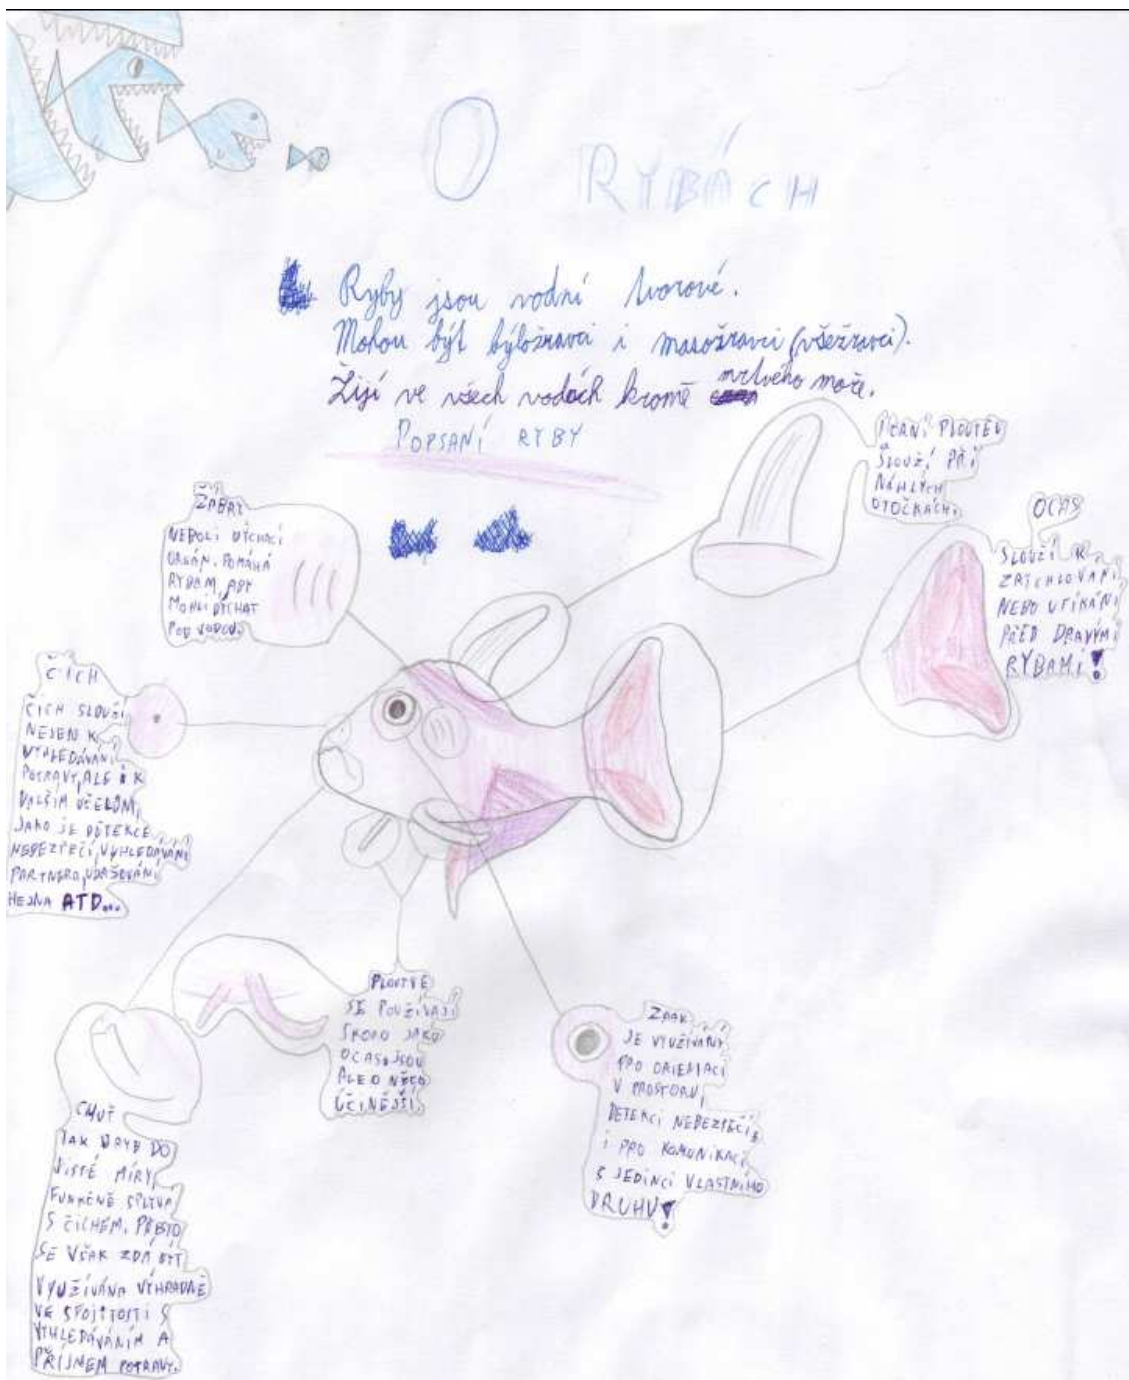 O RYBÁCH
Ryby jsou vodní tvorové.
Mohou být býložravci i masožravci (všežravci).
Žijí ve všech vodách kromě mrtvého moře.
POPSANÍ RYBY
ŽÁBRY
NEBOLI DÝCHACÍ
ORGÁN. POMÁHÁ
RYBÁM, ABY
MOHLI DÝCHAT
POD VODOU.
HORNÍ PLOUTEV
SLOUŽÍ PŘI
NÁHLÝCH
OTOČKÁCH.
OCAS
SLOUŽÍ K
ZRYCHLOVÁNÍ
NEBO UTÍKÁNÍ
PŘED DRAVÝMI
RYBAMI!
ČICH
ČICH SLOUŽÍ
NEJEN K
VYHLEDÁVÁNÍ
POTRAVY, ALE I K
DALŠÍM ÚČELŮM,
JAKO JE DETEKCE
NEBEZPEČÍ, VYHLEDÁVÁNÍ
PARTNERA, UDRŽOVÁNÍ
HEJNA ATD...
PLOUTVE
SE POUŽÍVAJÍ
SKORO JAKO
OCAS. JSOU
ALE O NĚCO
ÚČINĚJŠÍ.
ZRAK
JE VYUŽÍVANÝ
PRO ORIENTACI
V PROSTORU,
DETEKCI NEBEZPEČÍ,
I PRO KOMUNIKACI
S JEDINCI VLASTNÍHO
DRUHU!
CHUŤ
TAK U RYB DO
JISTÉ MÍRY
FUNKČNĚ SPLÝVÁ
S ČICHEM. PŘESTO
SE VŠAK ZDÁ BÝT
VYUŽÍVÁNA VÝHRADNĚ
VE SPOJITOSTI S
VYHLEDÁVÁNÍM A
PŘÍJMEM POTRAVY.